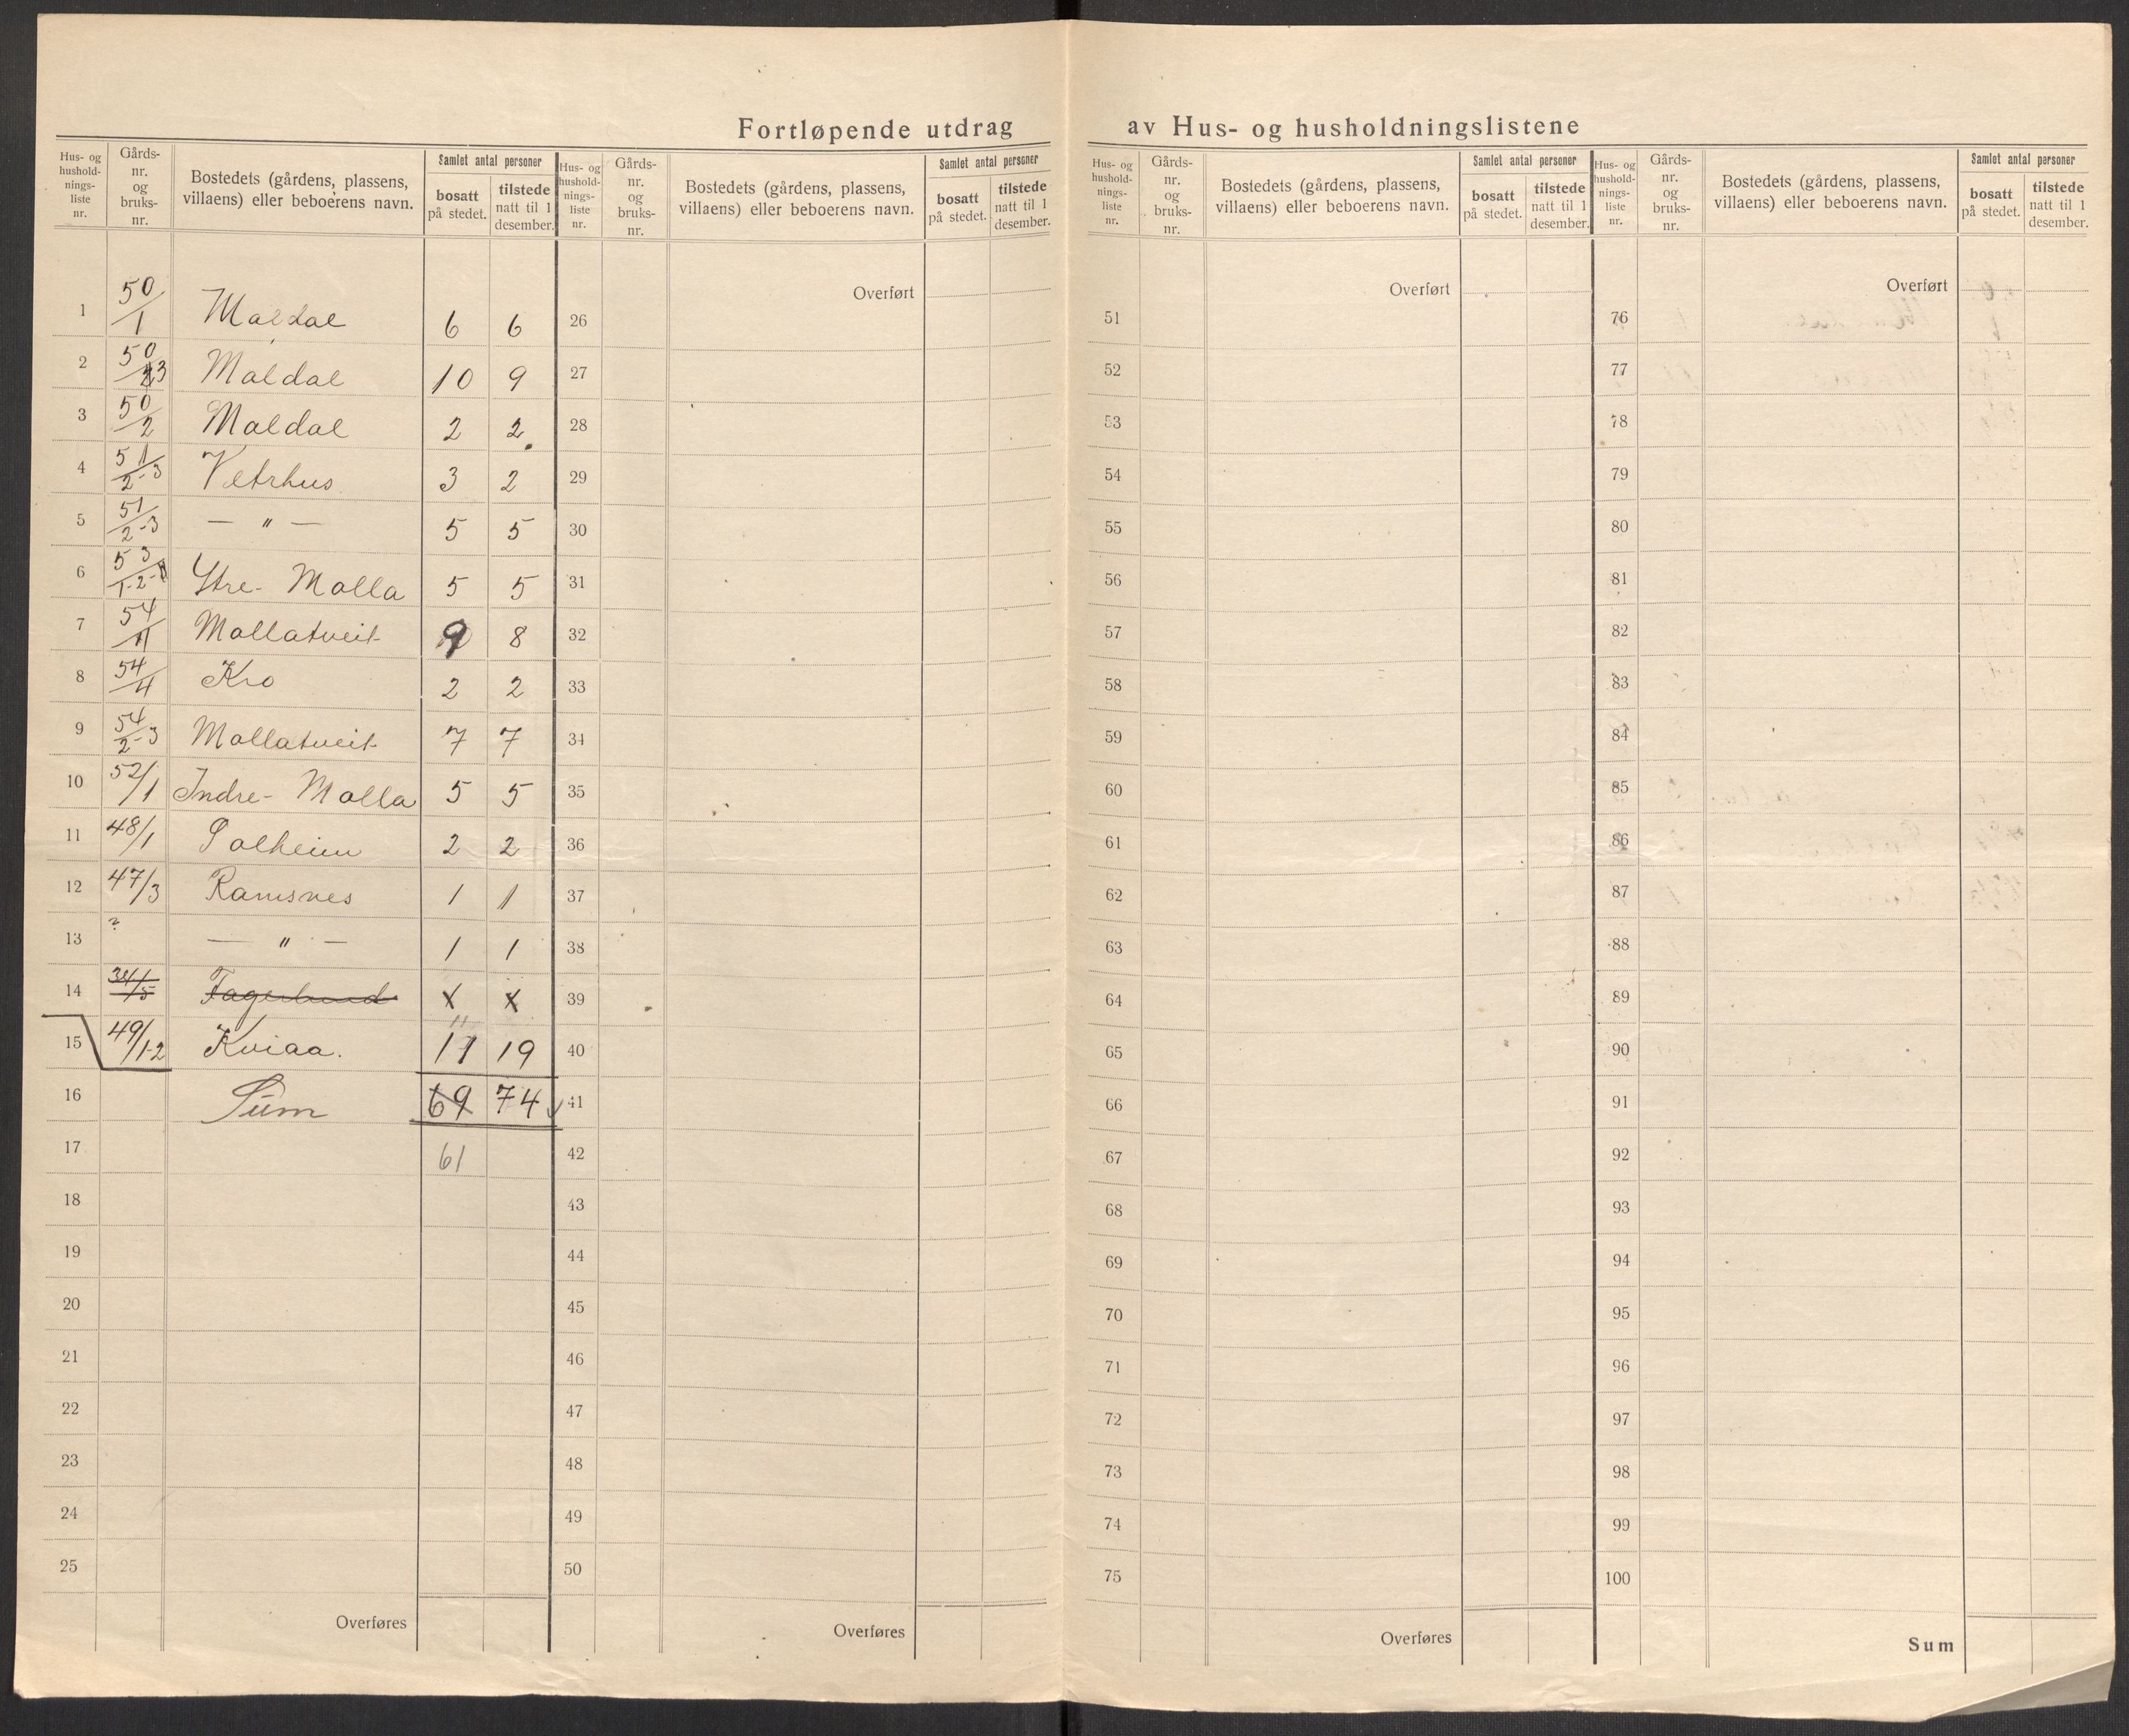 Fortløpende utdrag av Hus- og husholdningslistene
Hus- og hushold-nings-liste nr. | Gårds-nr. og bruks-nr. | Bostedets (gårdens, plassens, villaens) eller beboerens navn. | Samlet antal personer | bosatt på stedet. | tilstede natt til 1 desember.
1 50/1 Maldal 6 6
2 50/3 Maldal 10 9
3 50/2 Maldal 2 2
4 51/2-3 Vetrhus 3 2
5 51/2-3 — " — 5 5
6 53/1-2- Ytre- Molla 5 5
7 54/1 Mollatveit 9 8
8 54/4 Kro 2 2
9 54/2-3 Mollatveit 7 7
10 52/1 Indre- Molla 5 5
11 48/1 Solheim 2 2
12 47/3 Ramsnes 1 1
13 ? — " — 1 1
14 34/5 Fagerlund x x
11
15 49/1-2 Kviaa. 11 19
16 Sum 69 74
17 61
18
19
20
21
22
23
24
25
Overføres
Hus- og hushold-nings-liste nr. | Gårds-nr. og bruks-nr. | Bostedets (gårdens, plassens, villaens) eller beboerens navn. | Samlet antal personer | bosatt på stedet. | tilstede natt til 1 desember.
Overført
26
27
28
29
30
31
32
33
34
35
36
37
38
39
40
41
42
43
44
45
46
47
48
49
50
Overføres
Hus- og hushold-nings-liste nr. | Gårds-nr. og bruks-nr. | Bostedets (gårdens, plassens, villaens) eller beboerens navn. | Samlet antal personer | bosatt på stedet. | tilstede natt til 1 desember.
Overført
51
52
53
54
55
56
57
58
59
60
61
62
63
64
65
66
67
68
69
70
71
72
73
74
75
Overføres
Hus- og hushold-nings-liste nr. | Gårds-nr. og bruks-nr. | Bostedets (gårdens, plassens, villaens) eller beboerens navn. | Samlet antal personer | bosatt på stedet. | tilstede natt til 1 desember.
Overført
76
77
78
79
80
81
82
83
84
85
86
87
88
89
90
91
92
93
94
95
96
97
98
99
100
Sum